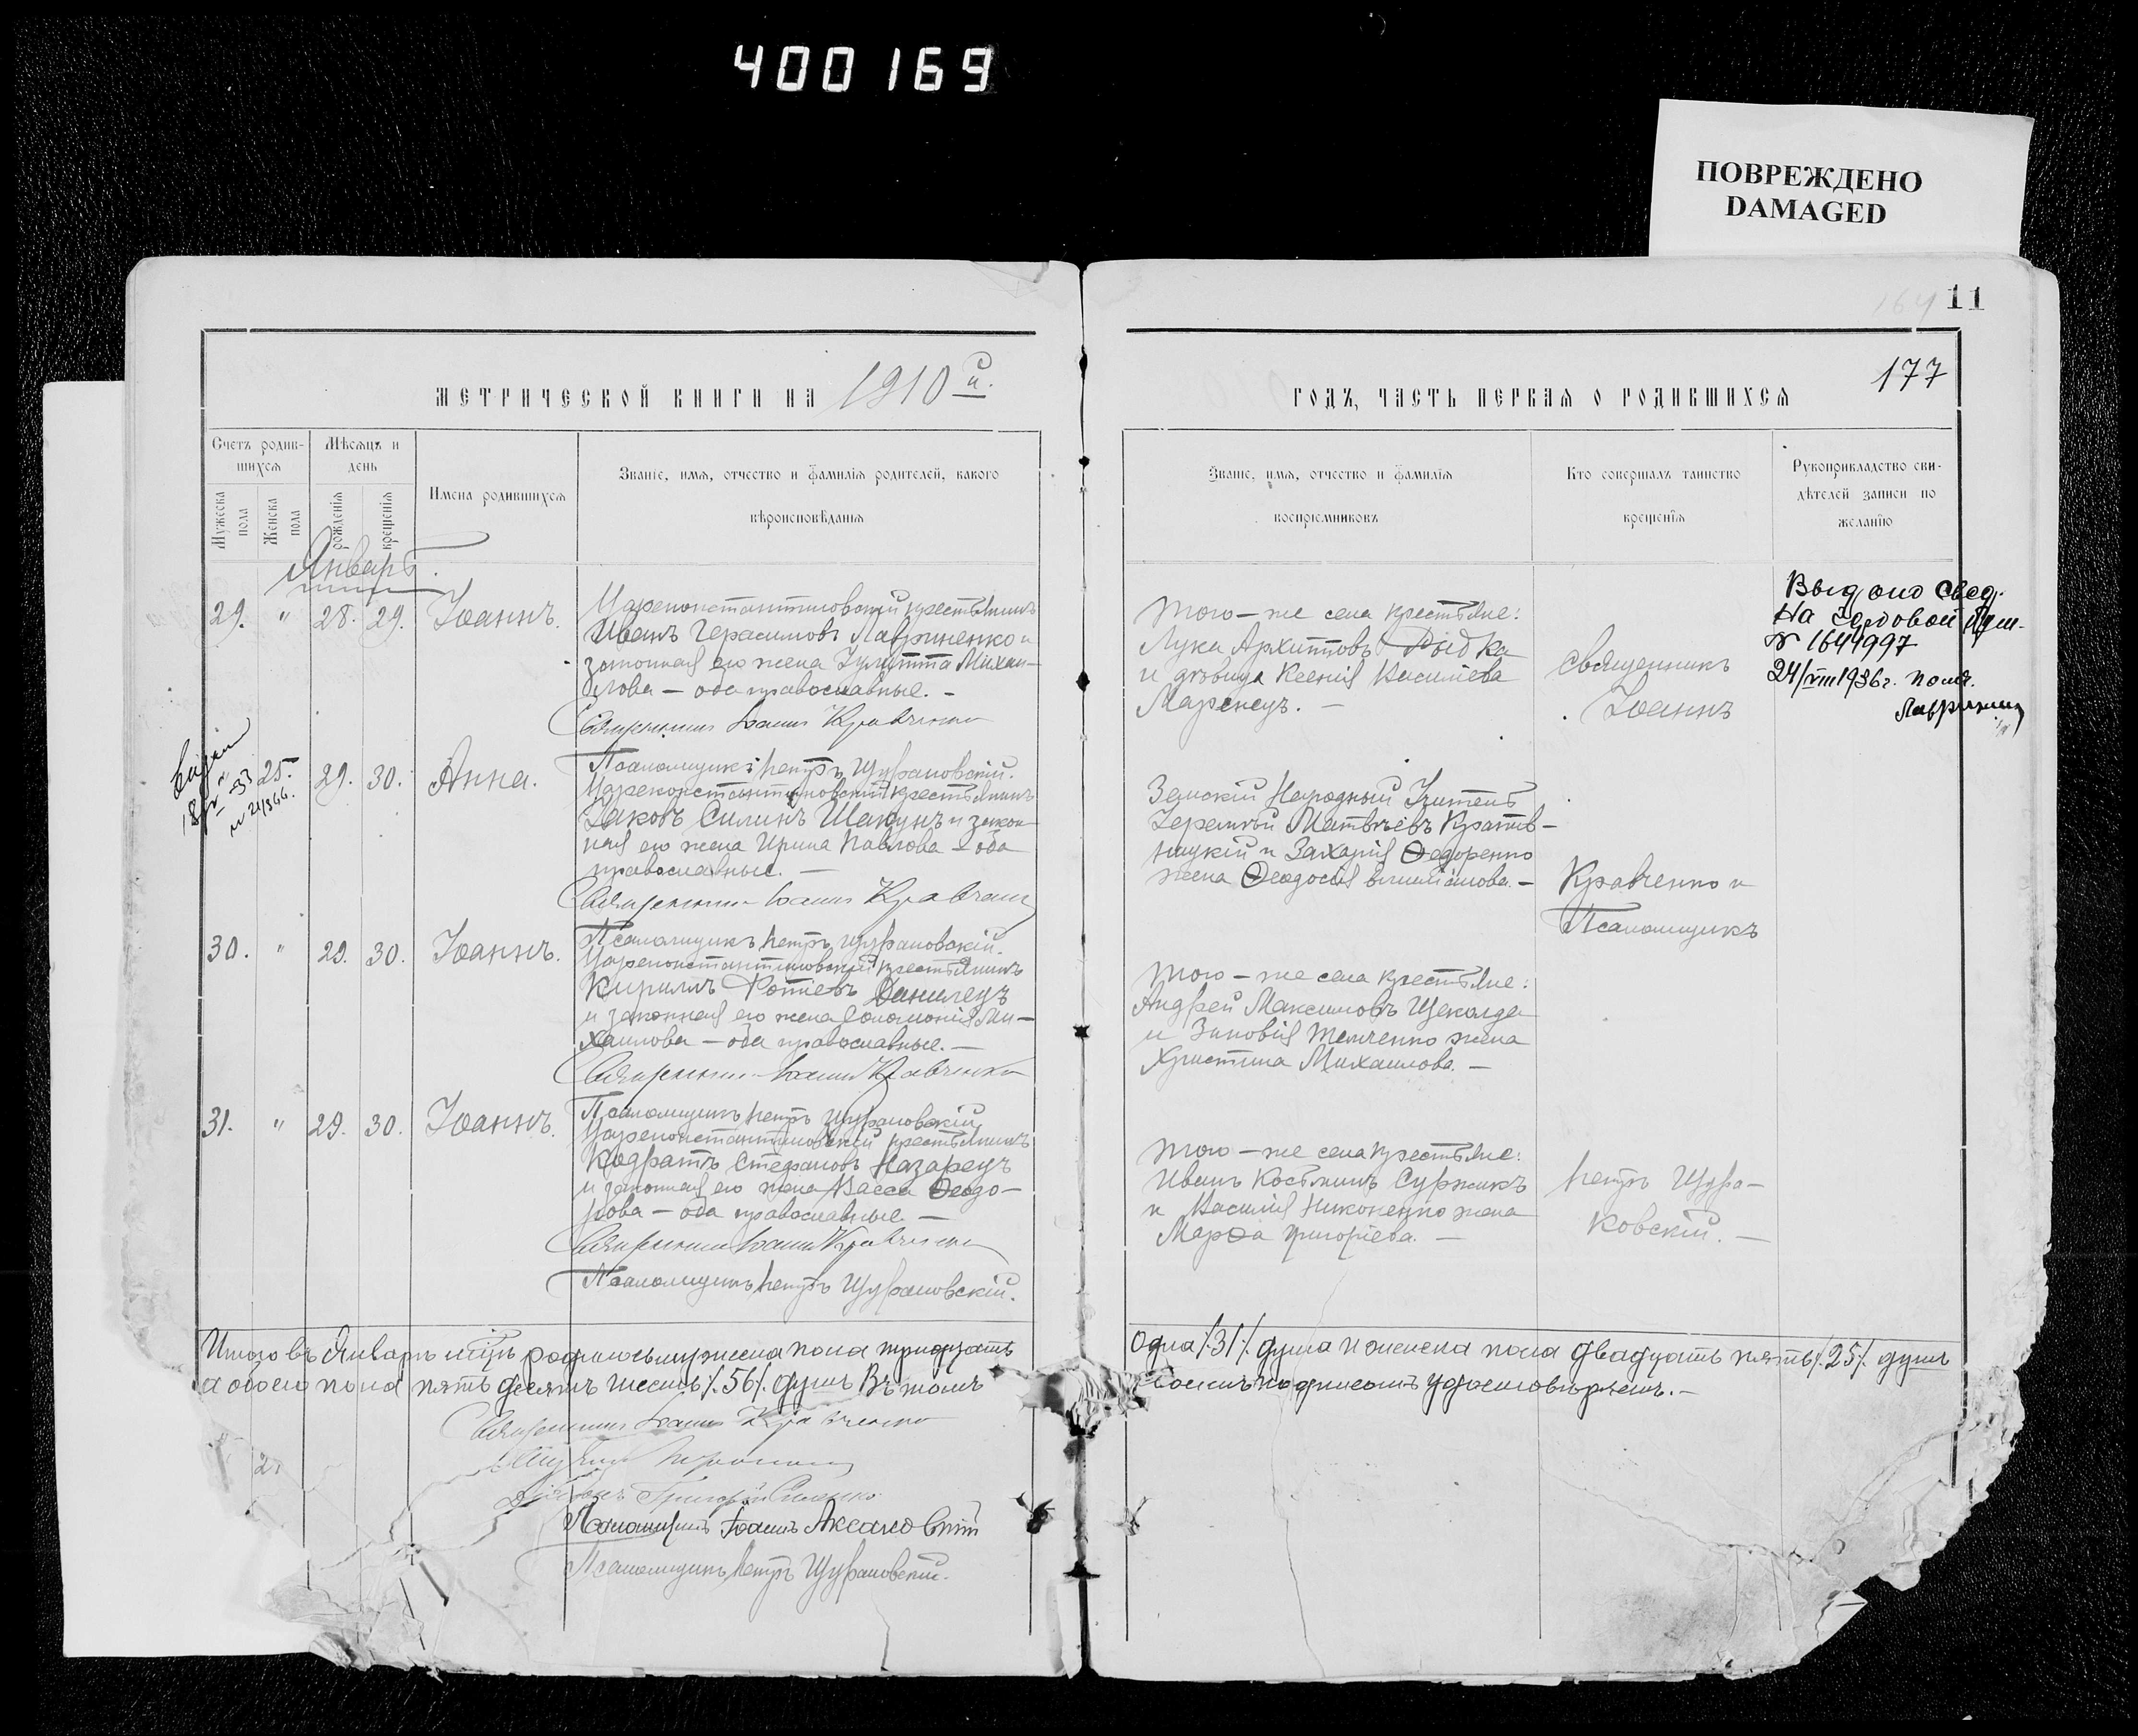 400169
ПОВРЕЖДЕНО
DAMAGED
11
164
177
МЕТРИЧЕСКОЙ КНИГИ НА 1910 й.
ГОДЪ, ЧАСТЬ ПЕРВАЯ О РОДИВШИХСЯ
Счетъ родив-
шихся
Мужеска пола
Женска пола
Мѣсяцъ и
день
рожденія
крещенія
Имена родившихся
Званіе, имя, отчество и фамилія родителей, какого
вѣроисповѣданія
Званіе, имя, отчество и фамилія
воспріемниковъ
Кто совершалъ таинство
крещенія
Рукоприкладство сви-
дѣтелей записи по
желанію
Январь.
29. " 28. 29. Іоаннъ.
Цареконстантиновскій крестьянинъ
Иванъ Герасимовъ Лавриненко и
законная его жена Іулитта Михаи-
лова — оба православные. -
Священникъ Іоаннъ Кравченко
Псаломщикъ Петръ Щуровскій.
Того-же села крестьяне:
Лука Архиповъ Рыбка
и дѣвица Ксенія Василіева
Маренецъ. —
Священникъ
Іоаннъ
Выдано свед.
На
N 1644997
24/VIII 1936 г.
25. 29. 30. Анна.
Цареконстантиновскій крестьянинъ
Іаковъ Силинъ Шакунъ и закон-
ная его жена Ирина Павлова - оба
православные. —
Священникъ Іоаннъ Кравченко
Псаломщикъ Петръ
Земскій Народный Учитель
Іеремій Матвѣевъ
и Захарія Ѳедоренко
жена Ѳеодосія —
Кравченко и
Псаломщикъ
30. " 29. 30. Іоаннъ.
Цареконстантиновскій крестьянинъ
Кириллъ Фотіевъ Данилецъ
и законная его жена Соломонія Ми-
хаилова — оба православные. —
Священникъ Іоаннъ Кравченко
Псаломщикъ Петръ
Того-же села крестьяне:
Андрей Максимовъ Щеколда
и Зиновія Темченко жена
Христина Михаилова. —
31. " 29. 30. Іоаннъ.
Цареконстантиновскій крестьянинъ
Кодратъ Стефановъ Назарецъ
и законная его жена Васса Ѳеодо-
рова — оба православные. —
Священникъ Іоаннъ Кравченко
Псаломщикъ Петръ
Того-же села крестьяне:
Иванъ Косьминъ Суржикъ
и Василія Никоненко жена
Марѳа Григоріева. —
Петръ
ковскій. —
Итого въ Январѣ м-цѣ родилось мужеска пола тридцать
одна /31/ душа и женска пола двадцать пять /25/ душъ
а обоего пола пять десятъ шесть /56/ душъ Въ томъ
подписомъ удостовѣряемъ. —
Священникъ Іоаннъ Кравченко
Псаломщикъ Іоаннъ
Псаломщикъ Петръ